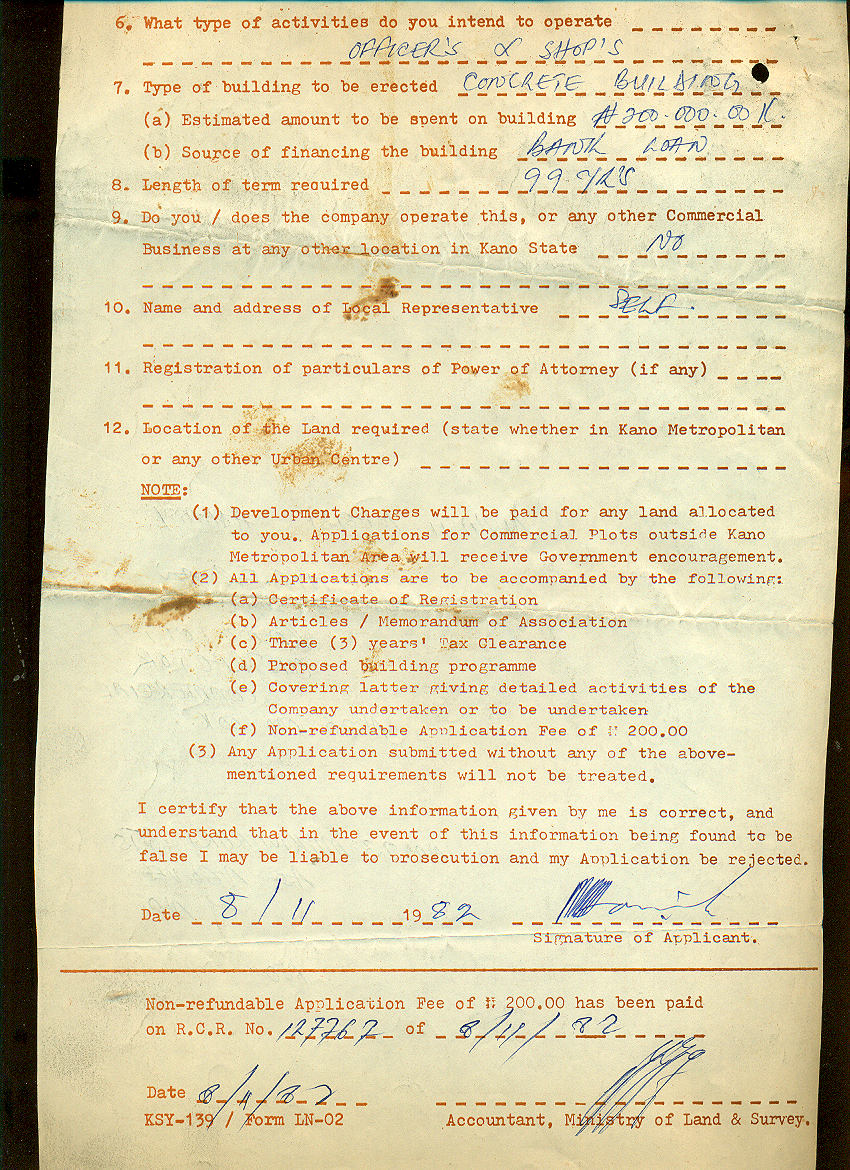 6. What type of activities do you intend to operate
OFFICER'S & SHOP'S
7. Type of building to be erected CONCRETE BUILDING
(a) Estimated amount to be spent on building ₦200.000.00 K.
(b) Source of financing the building BANK LOAN
8. Length of term required 99 YR'S
9. Do you / does the company operate this, or any other Commercial
Business at any other location in Kano State No
10. Name and address of Local Representative SELF.
11. Registration of particulars of Power of Attorney (if any)
12. Location of the Land required (state whether in Kano Metropolitan
or any other Urban Centre)
NOTE:
(1) Development Charges will be paid for any land allocated
to you. Applications for Commercial Plots outside Kano
Metropolitan Area will receive Government encouragement.
(2) All Applications are to be accompanied by the following:
(a) Certificate of Registration
(b) Articles / Memorandum of Association
(c) Three (3) years' Tax Clearance
(d) Proposed building programme
(e) Covering latter giving detailed activities of the
Company undertaken or to be undertaken
(f) Non-refundable Application Fee of ₦ 200.00
(3) Any Application submitted without any of the above-
mentioned requirements will not be treated.
I certify that the above information given by me is correct, and
understand that in the event of this information being found to be
false I may be liable to prosecution and my Application be rejected.
Date 8/11 1982
Signature of Applicant.
Non-refundable Application Fee of ₦ 200.00 has been paid
on R.C.R. No. 127767 of 8/11/82
Date 8/11/82
KSY-139 / Form LN-02 Accountant, Ministry of Land & Survey.